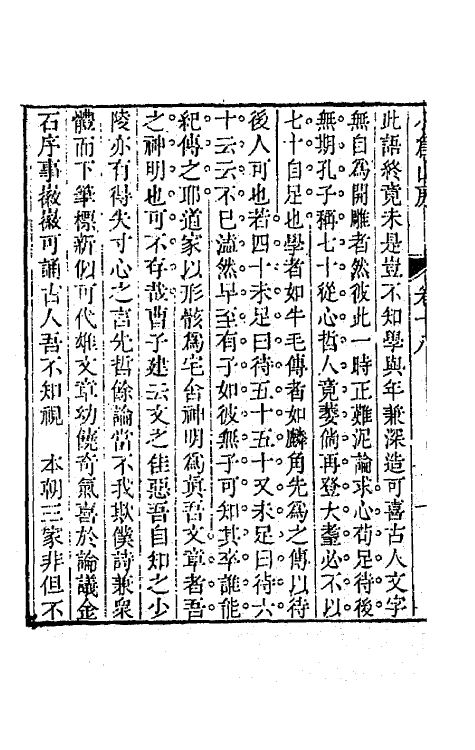 小倉山房
卷十八
此語終竟未是豈不知學與年兼深造可喜古人文字
無自為開雕者然彼此一時正難泥論求心苟足待後
無期孔子稱七十從心哲人竟萎倘再登大耋必不以
七十自足也學者如牛毛傳者如麟角先為之傳以待
後人可也若四十未足曰待五十五十又未足曰待六
十云云不已溘然早至有子如彼無子可知其卒誰能
紀傳之耶道家以形骸為宅舍神明為真吾文章者吾
之神明也可不存哉曹子建云文之佳惡吾自知之少
陵亦有得失寸心之言先哲餘論當不我欺僕詩兼衆
體而下筆標新似可代雄文章幼饒奇氣喜於論議金
石序事徽徽可誦古人吾不知視 本朝三家非但不